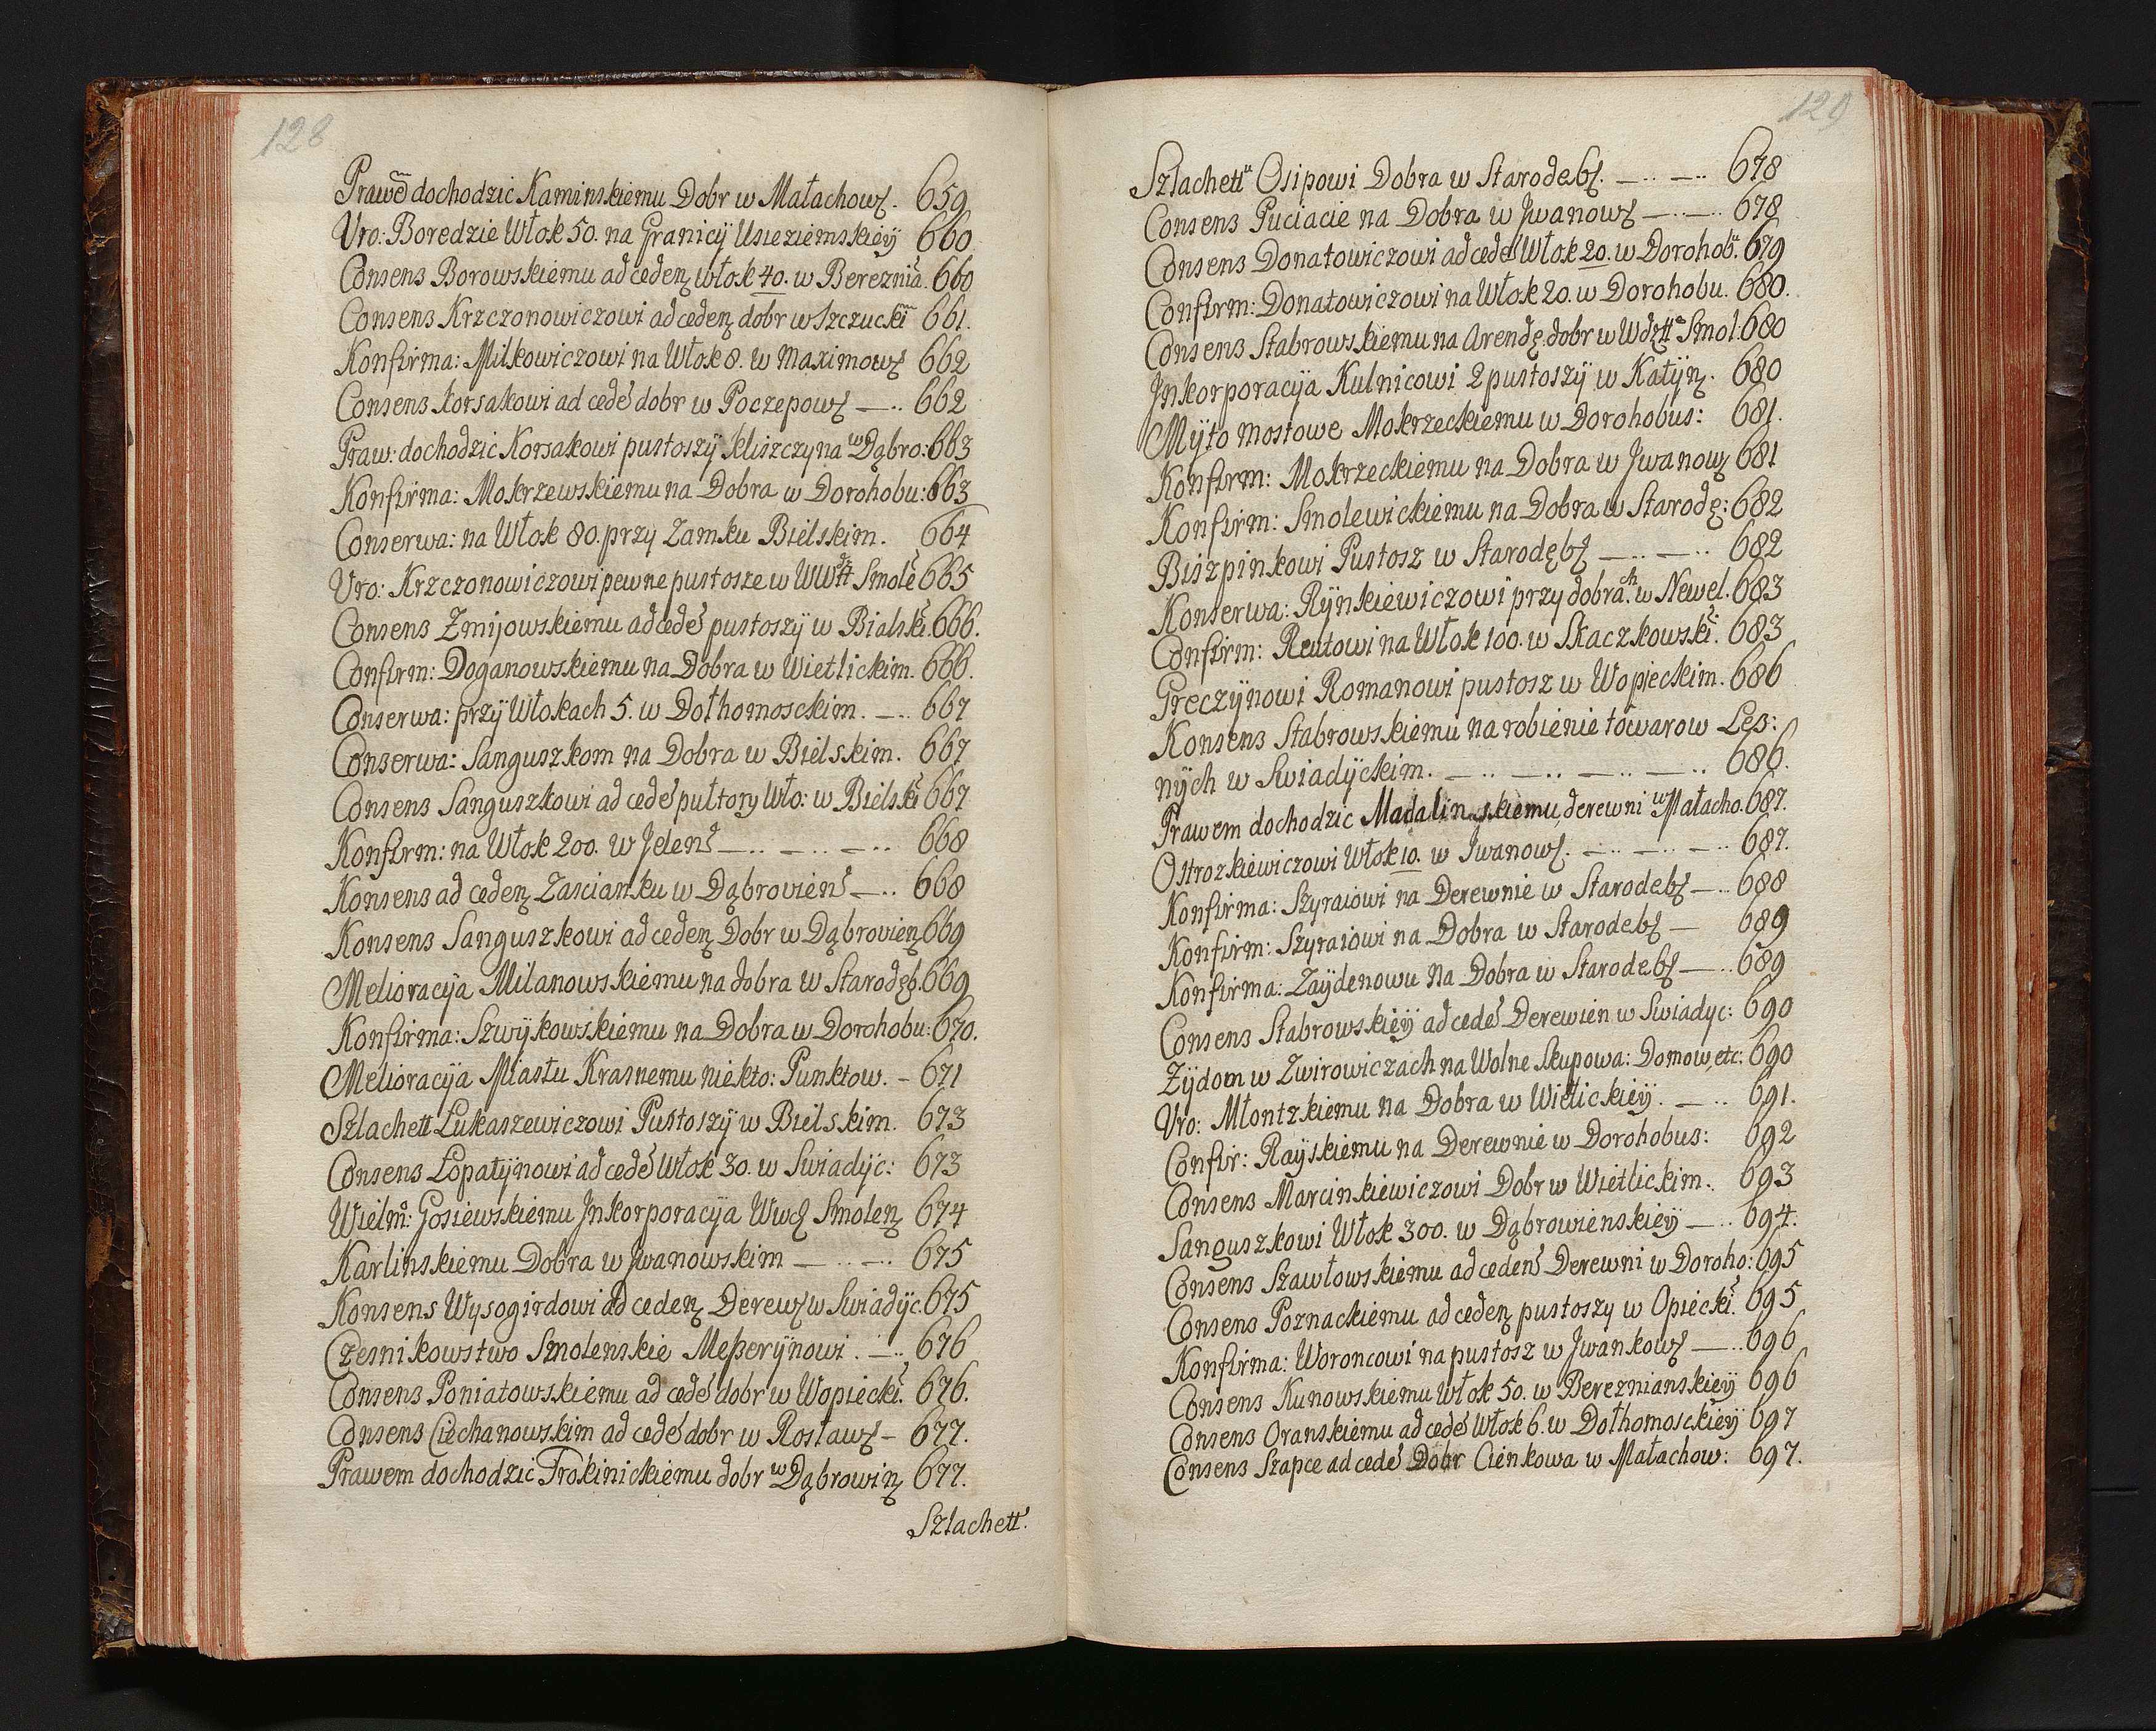 128
Prawẽ dochodzic Kaminskiemu Dobr w Małachow. 659
Uro: Boredzie Włok 50. na Granicÿ Usieziemskieÿ 660
Consens Borowskiemu ad ceden włok 40. w Bereznia. 660
Consens Krzczonowiczowi ad ceden dobr w Szczucki 661.
Konfirma: Milkowiczowi na Włok 8. w Maximow 662
Consens Korsakowi ad cede dobr w Poczepow —.. 662
Praw: dochodzic Korsakowi pustoszÿ Kliszczyna w Dąbro: 663
Konfirma: Mokrzewskiemu na Dobra w Dorohobu: 663
Conserwa: na Włok 80. przy Zamku Bielskim. 664
Uro: Krzczonowiczowi pewne pustosze w WWdztt Smole 665
Consens Zmijowskiemu ad cede pustoszÿ w Bialski. 666.
Confirm: Doganowskiemu na Dobra w Wietlickim. 666.
Conserwa: przÿ Włokach 5. w Dołhomosckim. —.. 667
Conserwa: Sanguszkom na Dobra w Bielskim. 667
Consens Sanguszkowi ad cede pułtory Wło: w Bielski 667
Konfirm: na Włok 200. w Jelen —.. —.. —.. 668
Konsens ad ceden Zascianku w Dąbrovien —.. 668
Konsens Sanguszkowi ad ceden Dobr w Dąbrovien 669
Melioracÿa Milanowskiemu na dobra w Starodęb. 669
Konfirma: Szwÿkowskiemu na Dobra w Dorohobu: 670.
Melioracÿa Miastu Krasnemu niekto: Punktow. – 671
Szlachett Łukaszewiczowi Pustoszÿ w Bielskim. 673
Consens Łopatÿnowi ad cede Włok 30. w Swiadÿc: 673
Wielmo: Gosiewskiemu Jnkorporacÿa Wwd Smolen 674
Karlinskiemu Dobra w Jwanowskim —.. —.. 675
Konsens Wysogirdowi ad ceden Derew w Swiadÿc. 675
Czesnikowstwo Smolenskie Meßerÿnowi. —.. 676
Consens Poniatowskiemu ad cede dobr w Wopiecki. 676.
Consens Ciechanowskim ad cede dobr w Rosław – 677.
Prawem dochodzic Trokinickiemu dobr w Dąbrowin 677.
Szlachett.
129
Szlachettu Osipowi Dobra w Starodeb. —.. —.. 678
Consens Puciacie na Dobra w Jwanow —.. —.. 678
Consens Donatowiczowi ad cede Włok 20. w Dorohobu. 679
Confirm: Donatowiczowi na Włok 20. w Dorohobu. 680.
Consens Stabrowskiemu na Arendę dobr w Wdztte Smol. 680
Jnkorporacÿa Kulnicowi 2 pustoszÿ w Katÿn. 680
Mÿto mostowe Mokrzeckiemu w Dorohobus: 681.
Konfirm: Mokrzeckiemu na Dobra w Jwanow 681
Konfirm: Smolewickiemu na Dobra w Starodę: 682
Biszpinkowi Pustosz w Starodęb —.. —.. 682
Konserwa: Rÿnkiewiczowi przy dobrach. w Newel. 683
Confirm: Reutowi na Włok 100. w Skaczkowski. 683
Greczÿnowi Romanowi pustosz w Wopieckim. 686
Konsens Stabrowskiemu na robienie towarow Les:
nÿch w Swiadÿckim. —.. —.. —.. —.. 686.
Prawem dochodzic Madalinskiemu derewni w Małacho. 687.
Ostrozkiewiczowi Włok 10. w Jwanow. —.. —.. —.. 687.
Konfirma: Szyraiowi na Derewnie w Starodeb —.. 688
Konfirm: Szyraiowi na Dobra w Starodeb — 689
Konfirma: Zaÿdenowu Na Dobra w Starodeb —.. 689
Consens Stabrowskieÿ ad cede Derewien w Swiadyc: 690
Zÿdom w Zwirowiczach na Wolne Skupowa: Domow, etc: 690
Uro: Młontzkiemu na Dobra w Wietlickieÿ. —.. 691.
Confir: Raÿskiemu na Derewnie w Dorohobus: 692
Consens Marcinkiewiczowi Dobr w Wietlickim. 693
Sanguszkowi Włok 300. w Dąbrowienskieÿ —.. 694.
Consens Szawłowskiemu ad ceden Derewni w Doroho: 695
Consens Poznackiemu ad ceden pustoszy w Opiecki. 695
Konfirma: Woroncowi na pustosz w Jwankow —.. 696
Consens Kunowskiemu Włok 50. w Bereznianskieÿ 696
Consens Oranskiemu ad cede Włok 6. w Dołhomosckieÿ 697
Consens Szapce ad cede Dobr Cienkowa w Małachow: 697.